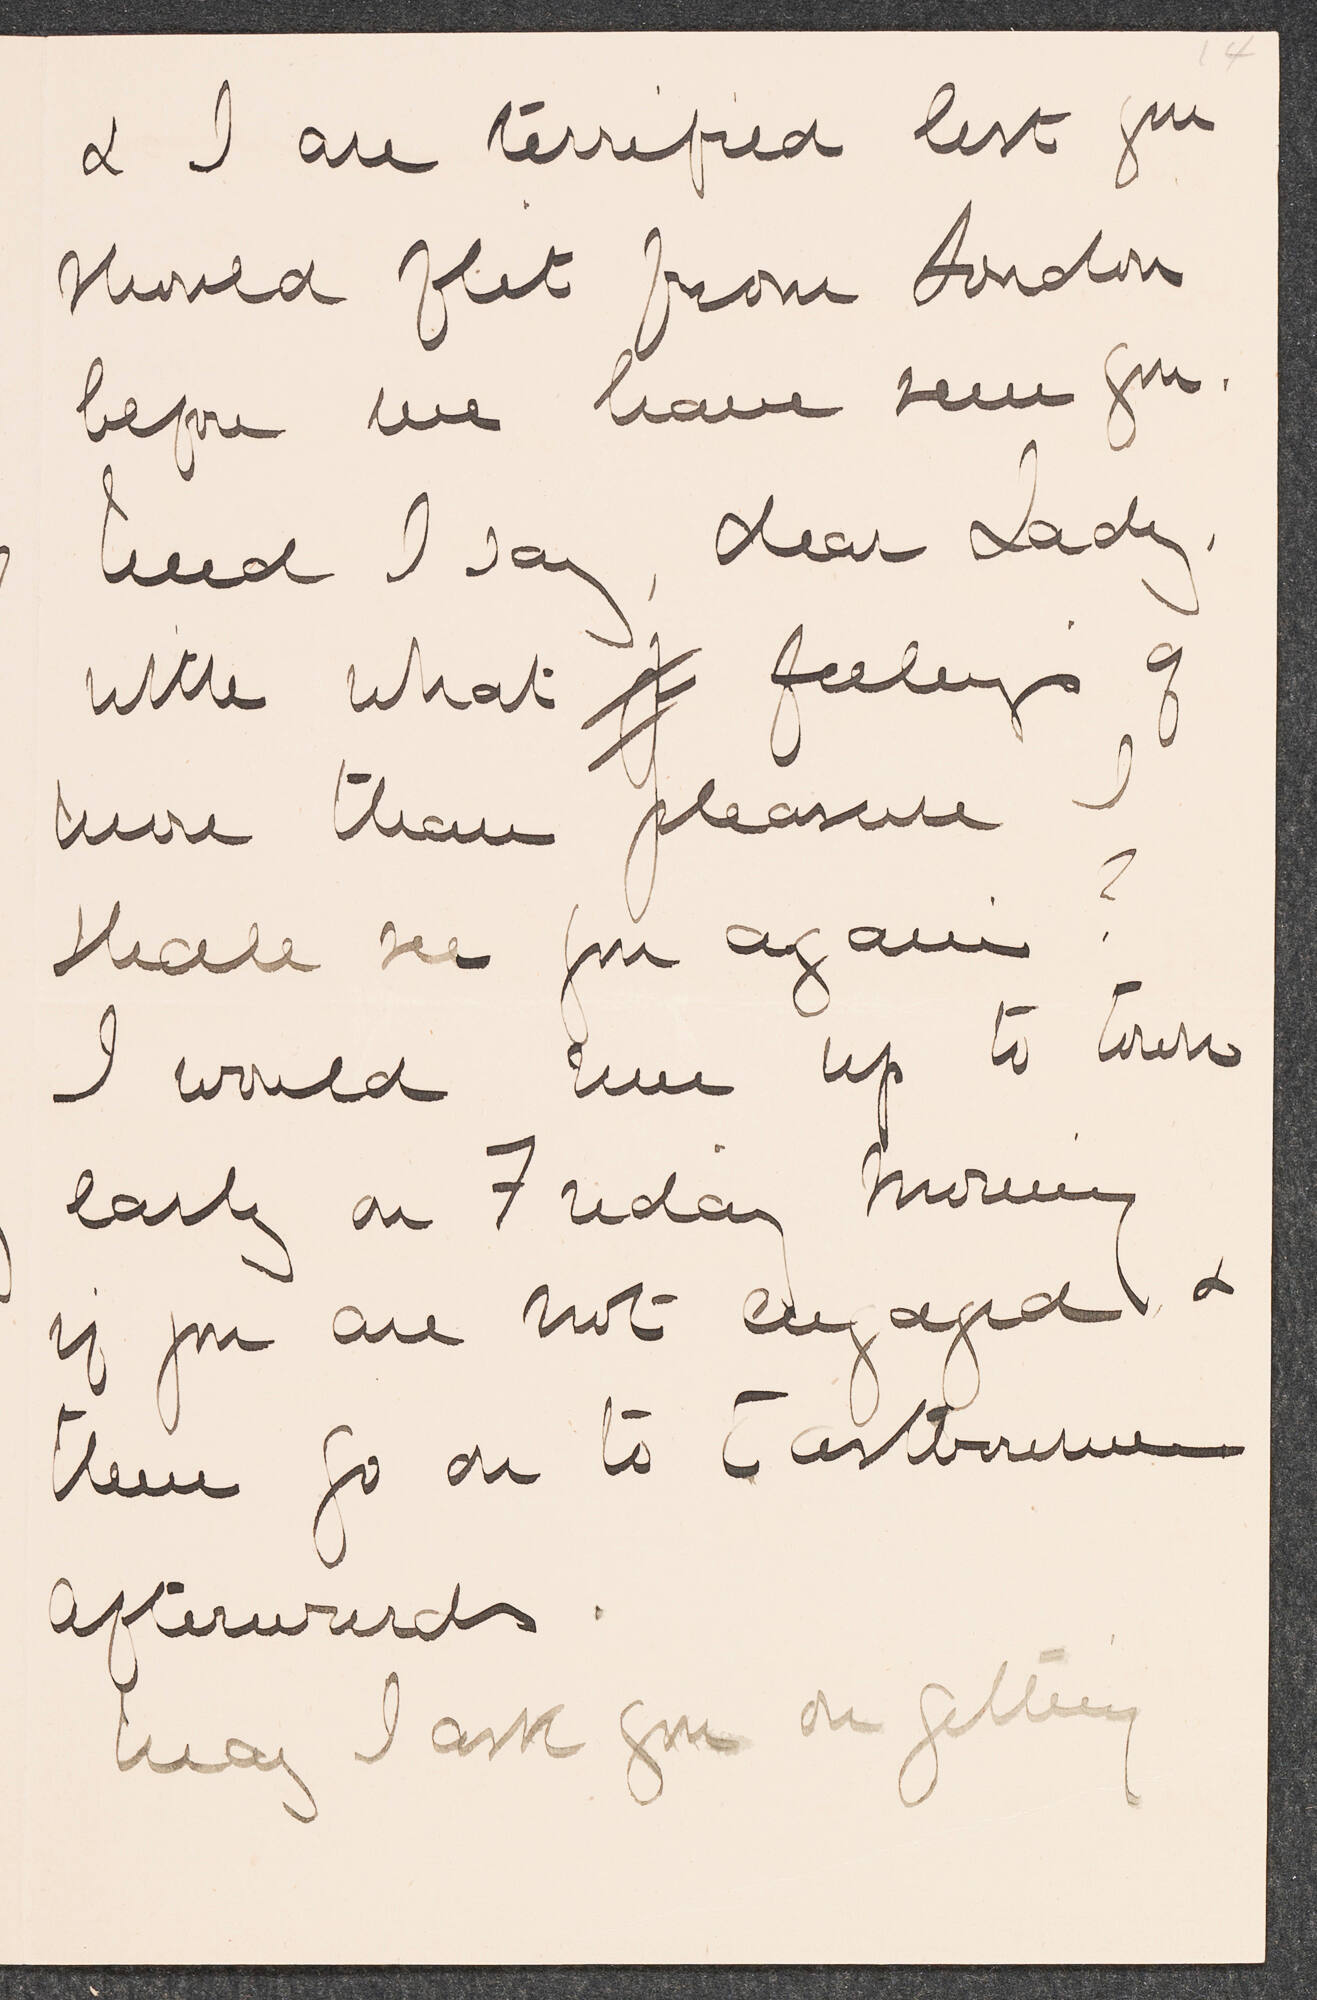 14
& I are terrified lest you
should flit from London
before we have seen you.
Need I say, dear Lady,
with what feelings of
more than pleasure I
shall see you again?
I would run up to town
early on Friday morning
if you are not engaged, &
then go on to Eastbourne
afterwards.
May I ask you on getting